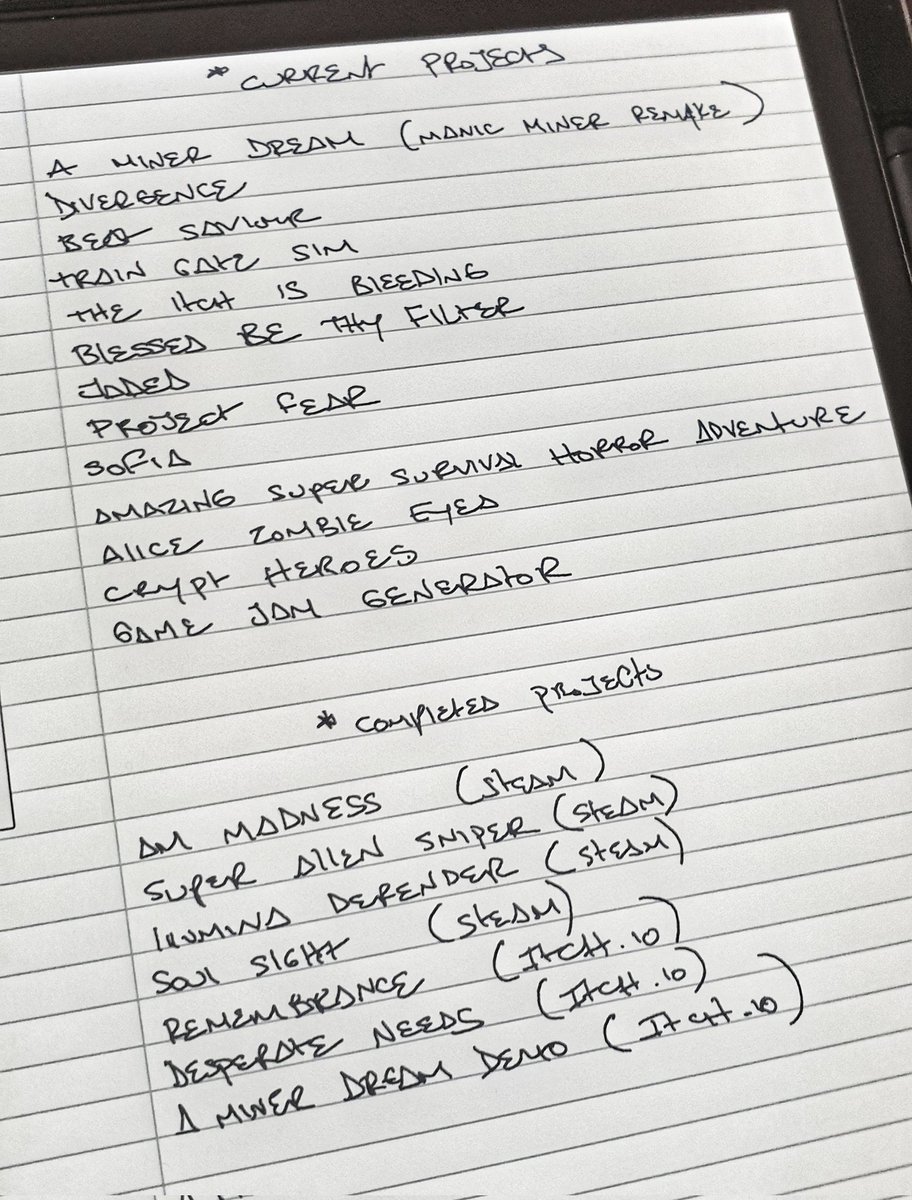 * CURRENT PROJECTS
A MINER DREAM (MANIC MINER REMAKE)
DIVERGENCE
BEAT SAVIOUR
TRAIN GATE SIM
THE ITCH IS BLEEDING
BLESSED BE THY FILTER
JADED
PROJECT FEAR
SOFIA
AMAZING SUPER SURVIVAL HORROR ADVENTURE
ALICE ZOMBIE EYED
CRYPT HEROES
GAME JAM GENERATOR
* COMPLETED PROJECTS
AM MADNESS (STEAM)
SUPER ALIEN SNIPER (STEAM)
ILUMINA DEFENDER (STEAM)
SOUL SIGHT (STEAM)
REMEMBRANCE (ITCH.IO)
DESPERATE NEEDS (ITCH.IO)
A MINER DREAM DEMO (ITCH.IO)